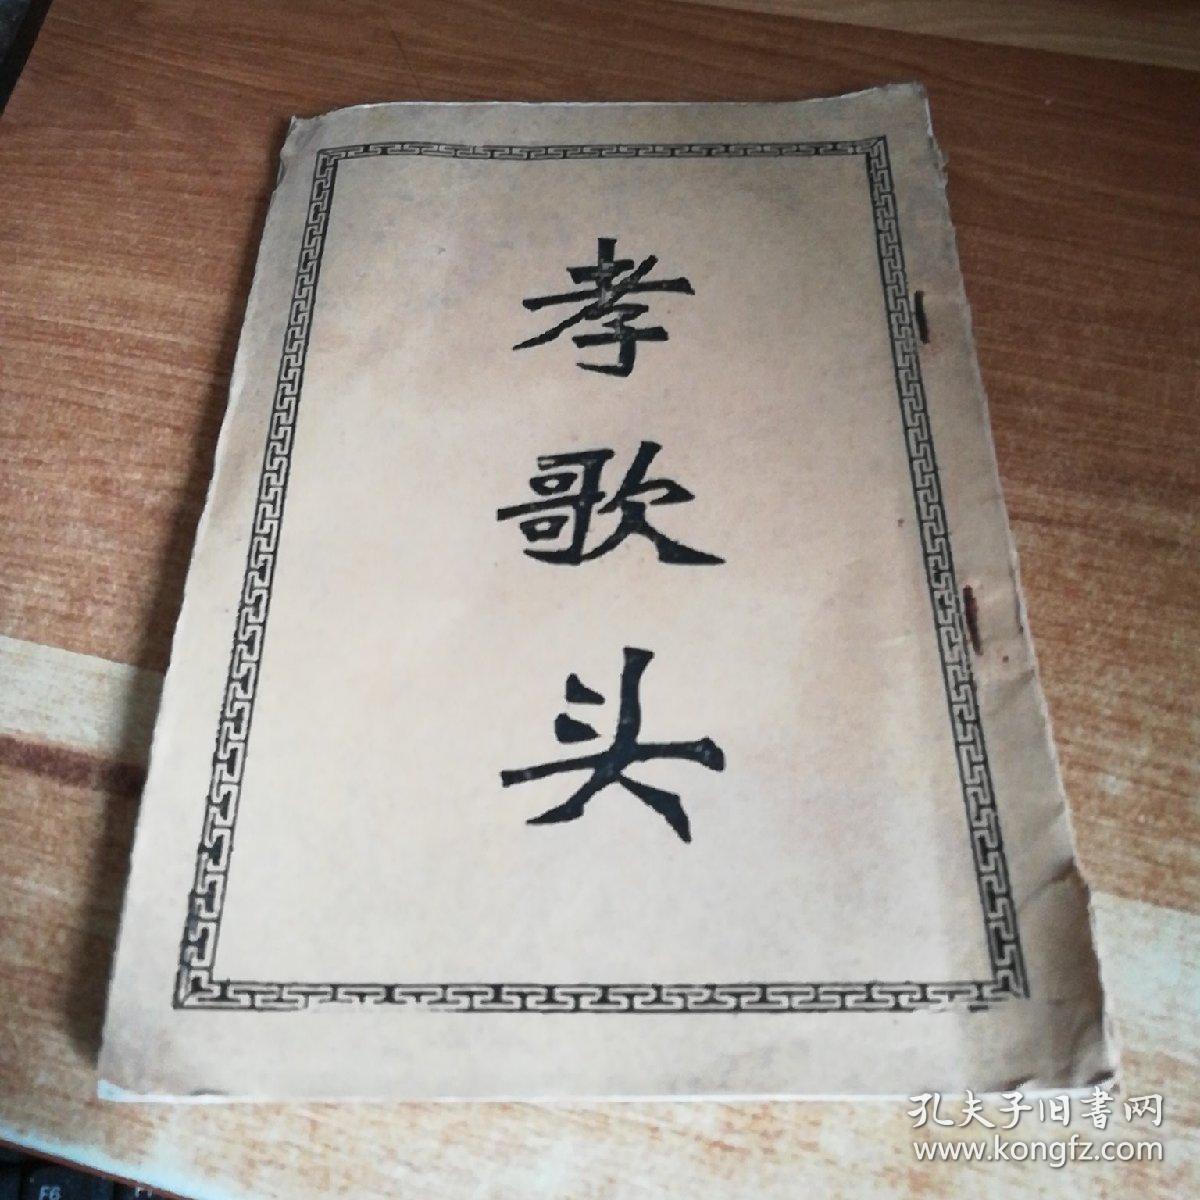 孝歌头
孔夫子旧書网
www.kongfz.com
F6
F7